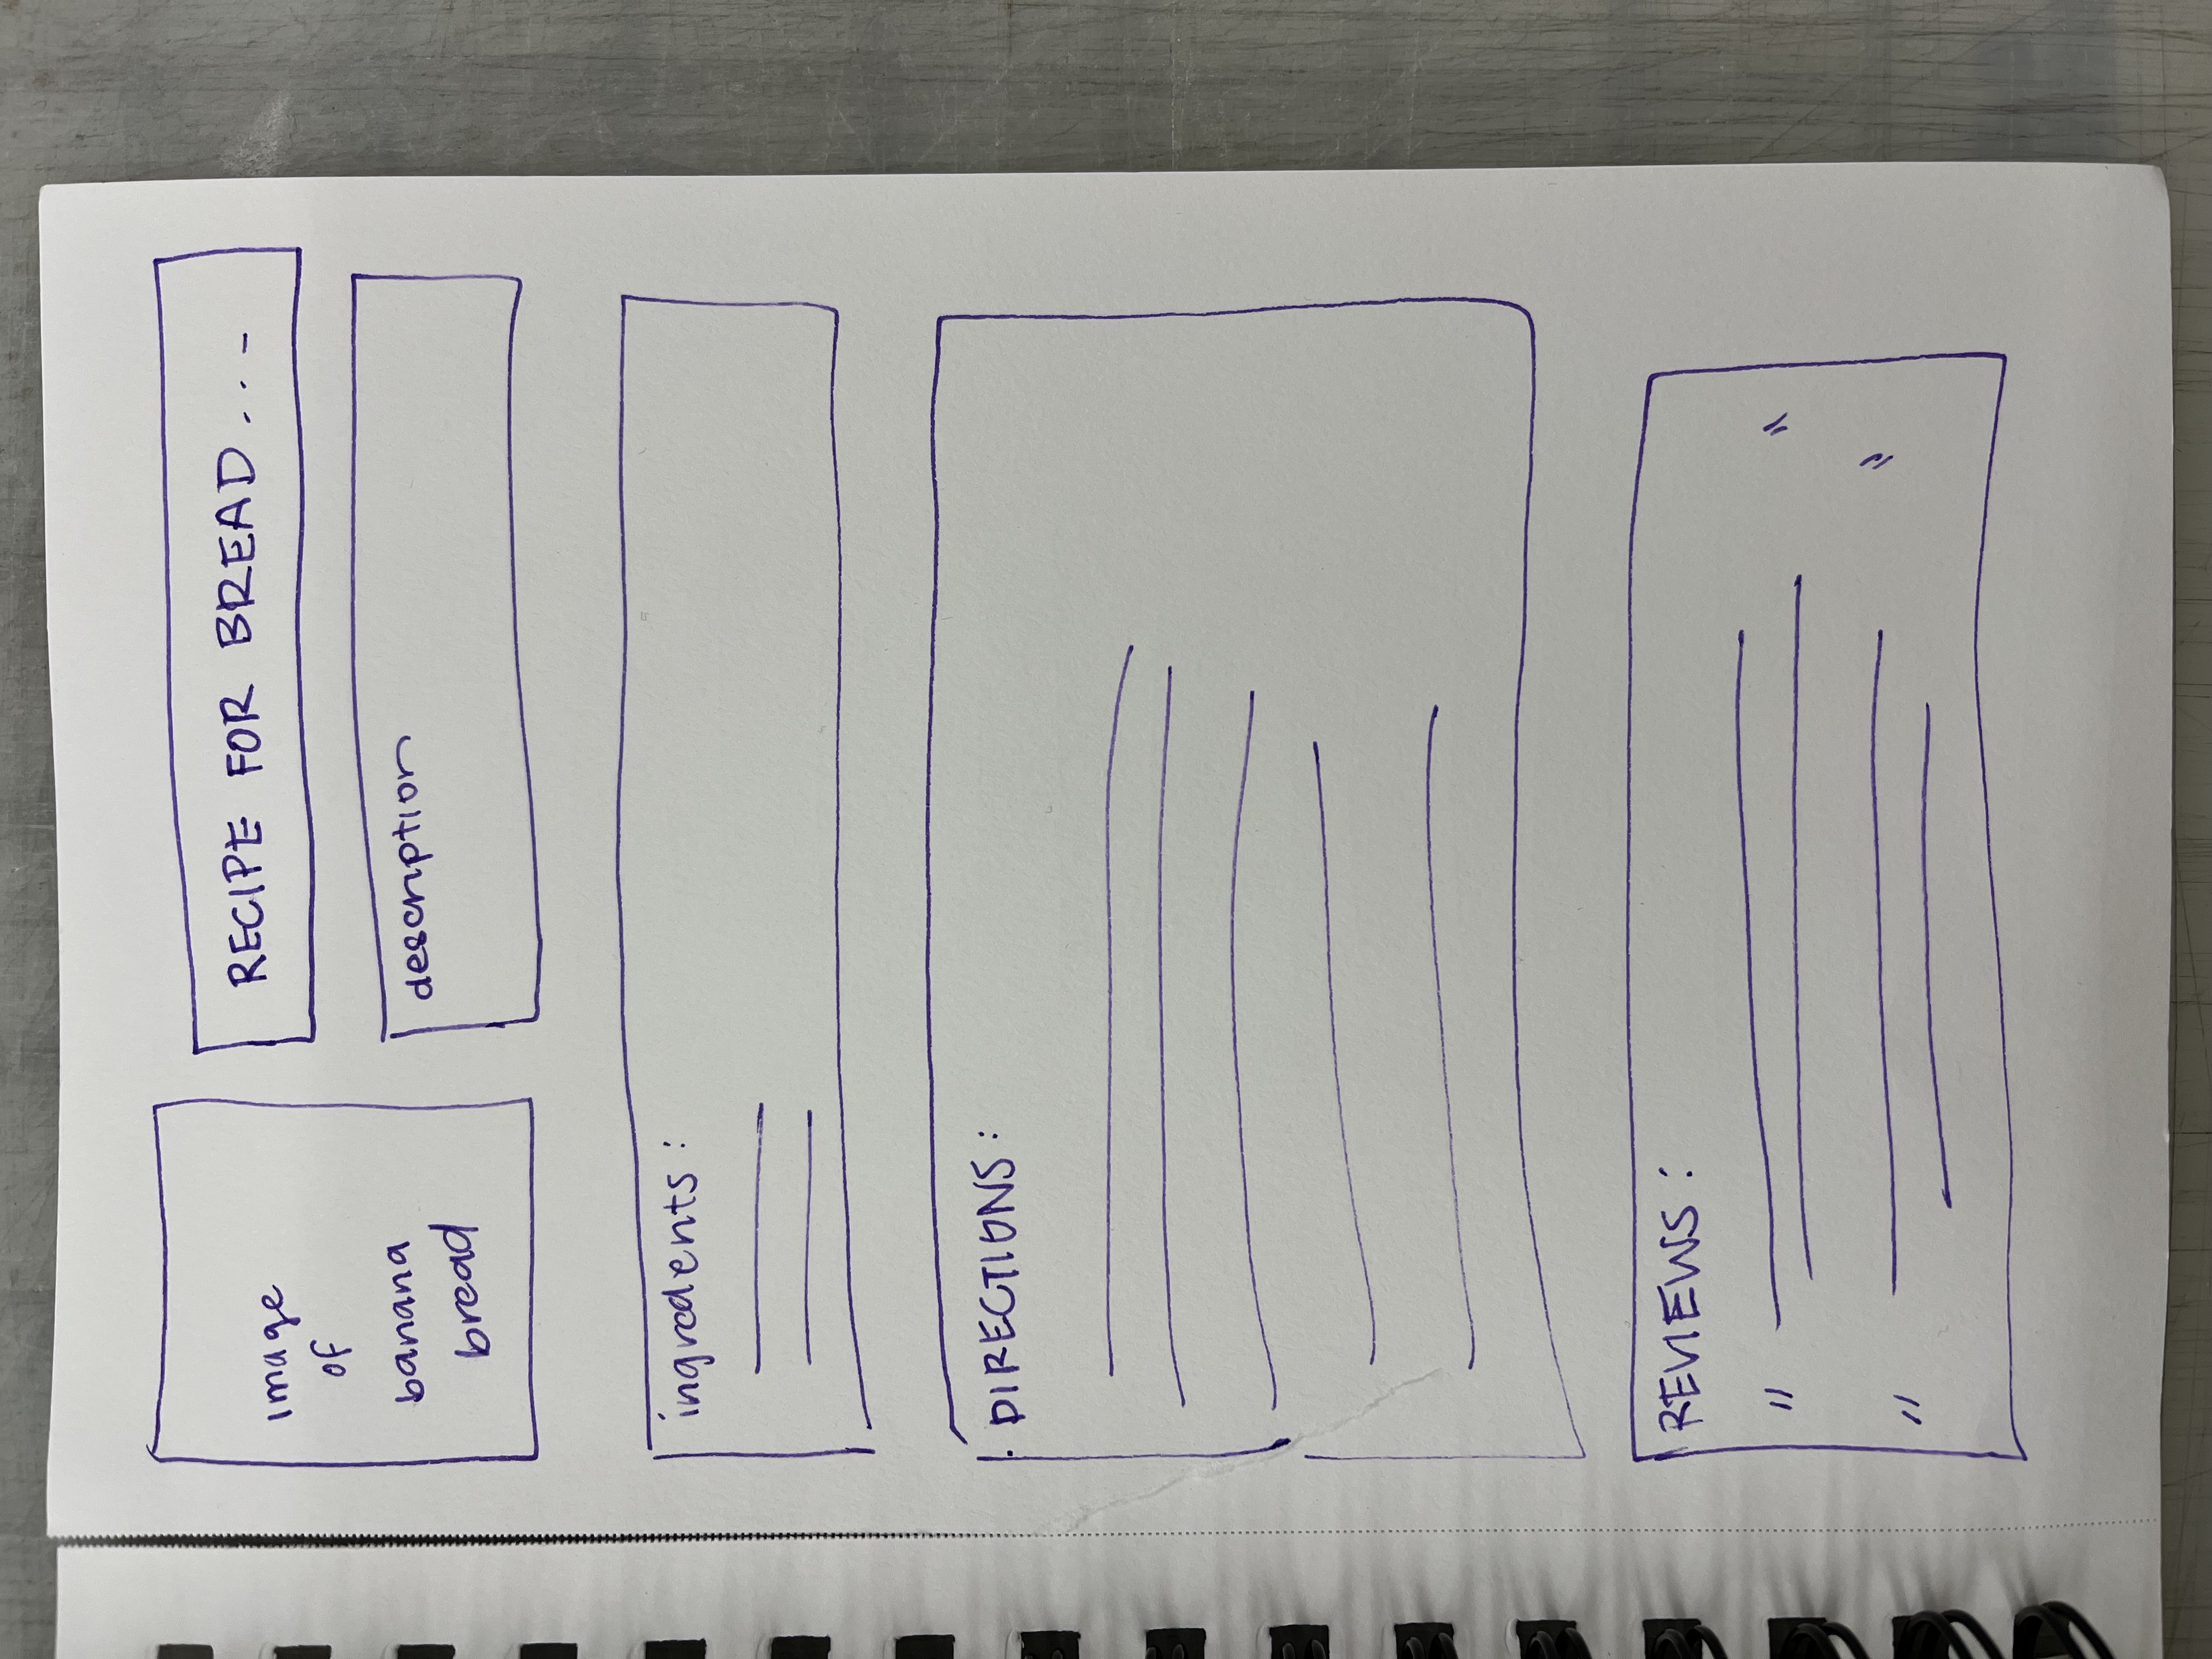 image
of
banana
bread
RECIPE FOR BREAD...
description
ingredents:
DIRECTIONS:
REVIEWS:
" "
" "